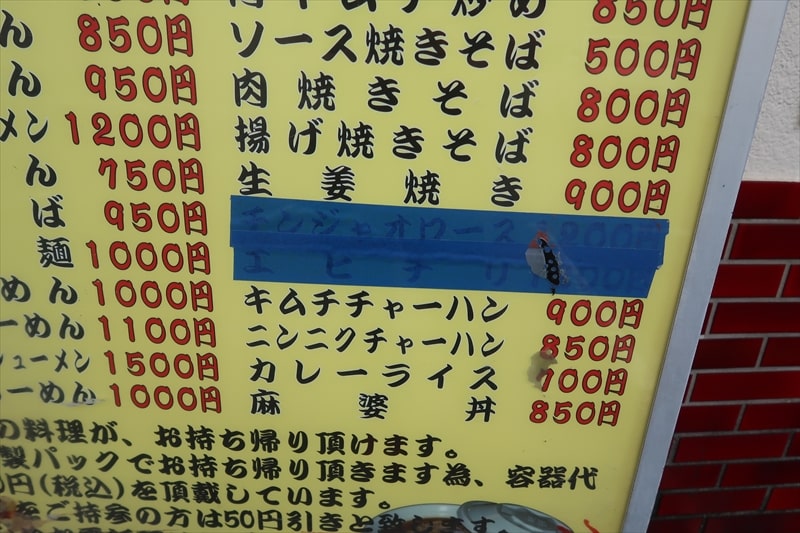 850円
ん 850円
ん 950円
メン 1200円
ん 750円
ば 950円
麺 1000円
めん 1000円
ーめん 1100円
シューメン 1500円
らーめん 1000円
850円
ソース焼きそば 500円
肉焼きそば 800円
揚げ焼きそば 800円
生姜焼き 900円
チンジャオロース 1200円
エビチリ
キムチチャーハン 900円
ニンニクチャーハン 850円
カレーライス 700円
麻婆丼 850円
の料理が、お持ち帰り頂けます。
製パックでお持ち帰り頂きます為、容器代
0円(税込)を頂戴しています。
をご持参の方は50円引きと致します。